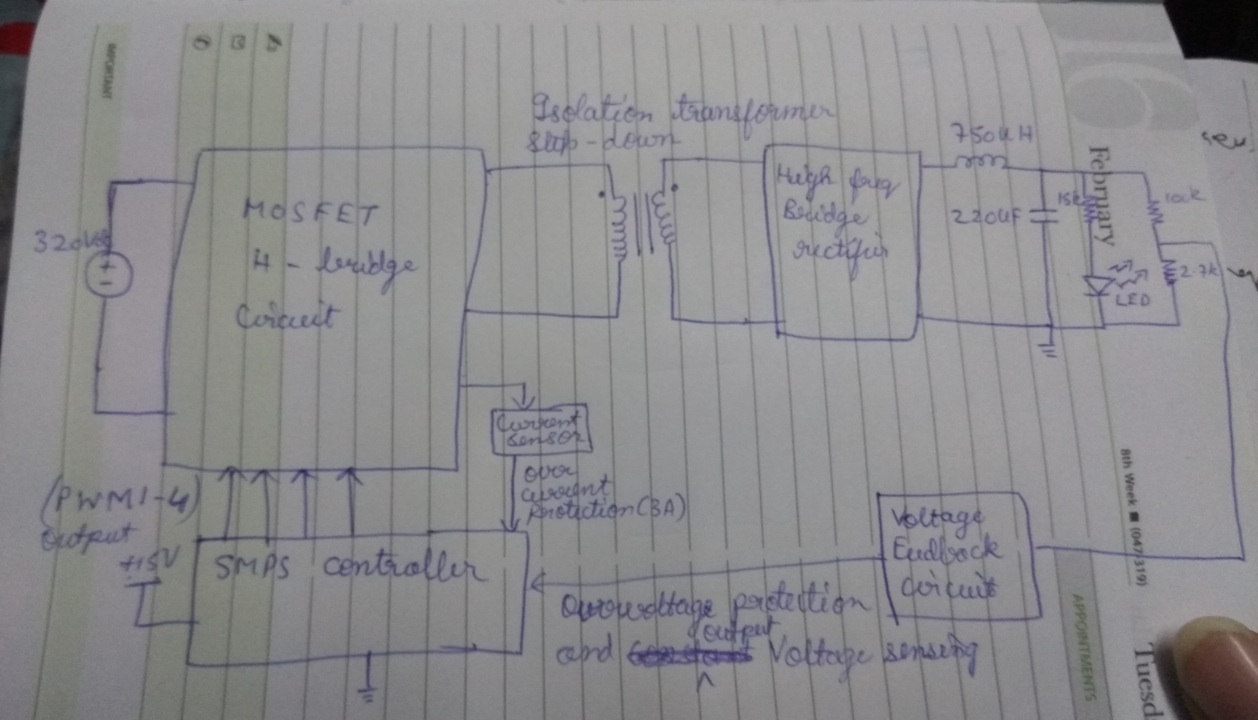 IMPORTANT
16
February
8th Week ■ (047/319)
APPOINTMENTS
Tuesd
Isolation transformer
Step-down
320V
MOSFET
H - bridge
Circuit
High freq
Bridge
rectifier
750uH
220UF
15k
LED
10k
2.7k
Current
sensor
over
current
protection (3A)
(PWM1-4)
output
+15V
SMPS controller
Voltage
Feedback
circuit
Overvoltage protection
output
and Voltage sensing